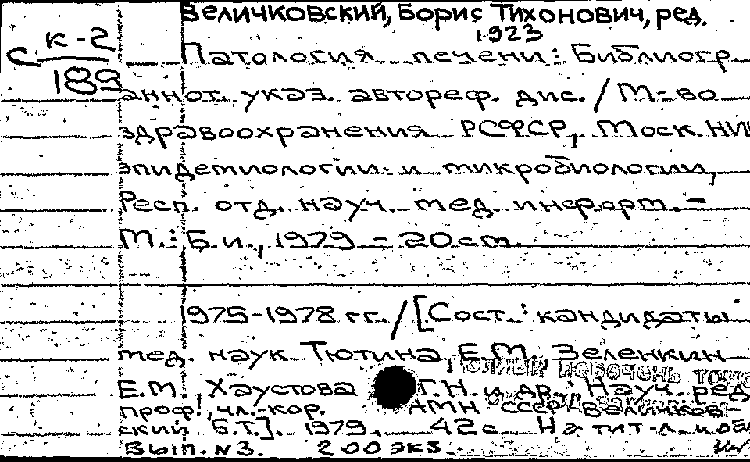 Величковский, Борис Тихонович, ред.
1923
С К-2
189
Патология печени: Библиогр
аннот. указ. автореф. дис. / М-во
здравоохранения РСФСР, Моск. НИИ
эпидемиологии и микробиологии,
Респ. отд. науч. мед. информ. -
М.: Б. и., 1979 - 20 см.
1975-1978 гг. / [Сост.: кандидаты
мед. наук Тютина, Е.М. Зеленкин
Е.М. Хаустова Г.Н. и др.; Науч. ред
проф., чл.-кор. АМН СССР Величков-
ский Б.Т.]. 1979. 42 с. На тит. л. и об
Вып. № 3. 200 экз.